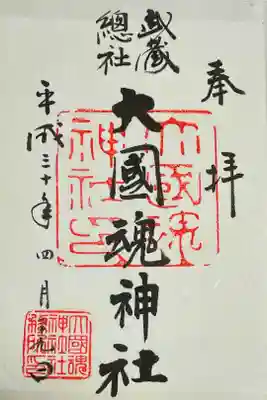 奉拝
武藏
總社
大國魂神社
平成三十年四月 日
大國魂
神社印
大國魂
神社社